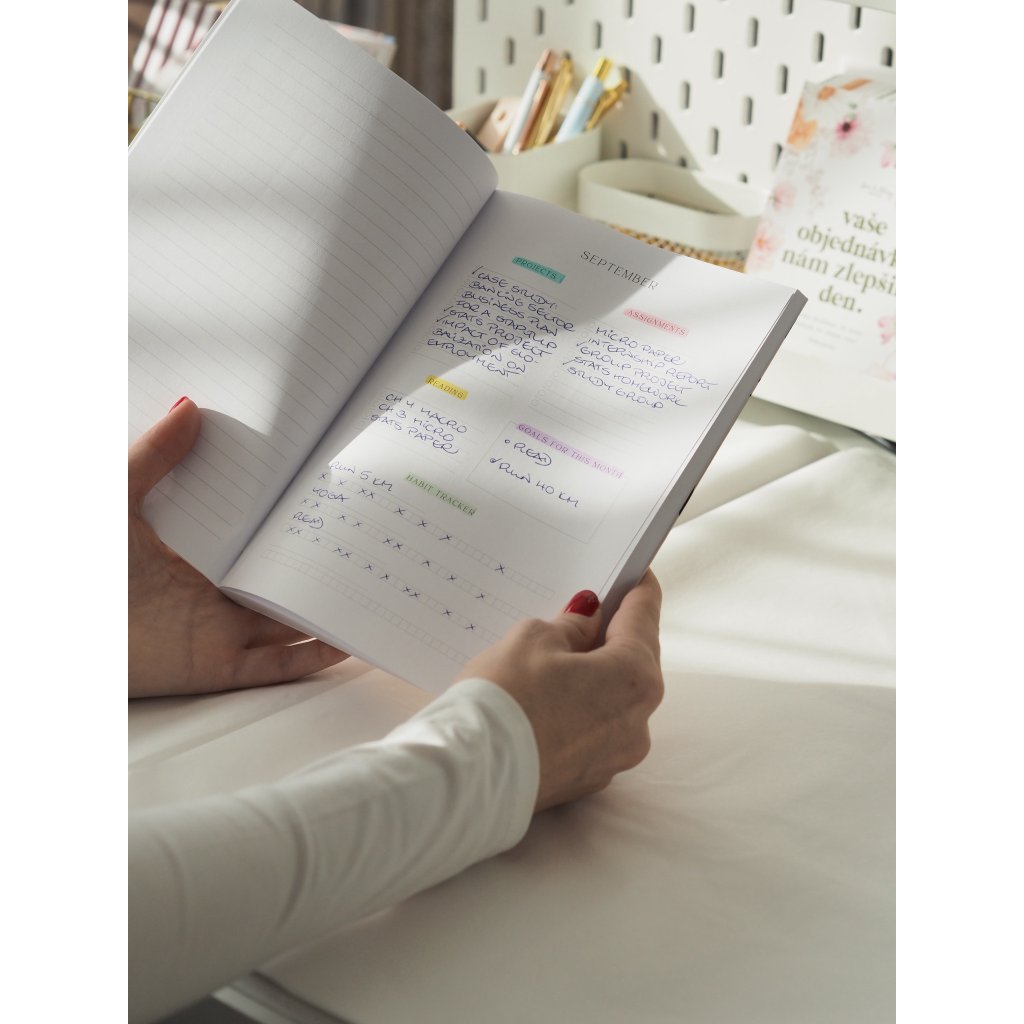 SEPTEMBER
PROJECTS
✓CASE STUDY:
BANKING SECTOR
BUSINESS PLAN
FOR A STARTUP
✓STATS PROJECT
✓IMPACT OF GLO-
BALIZATION ON
EMPLOYMENT
ASSIGNMENTS
MICRO PAPER
✓INTERNSHIP REPORT
✓GROUP PROJECT
✓STATS HOMEWORK
STUDY GROUP
READING
CH 4 MACRO
CH 3 MICRO
STATS PAPER
GOALS FOR THIS MONTH
• READ
✓ RUN 40 KM
HABIT TRACKER
RUN 5 KM
x x xx x x x x
YOGA
x x x x xx x x x
READ
xx x xx x x xx x x
vaše
objednávk
nám zlepši
den.